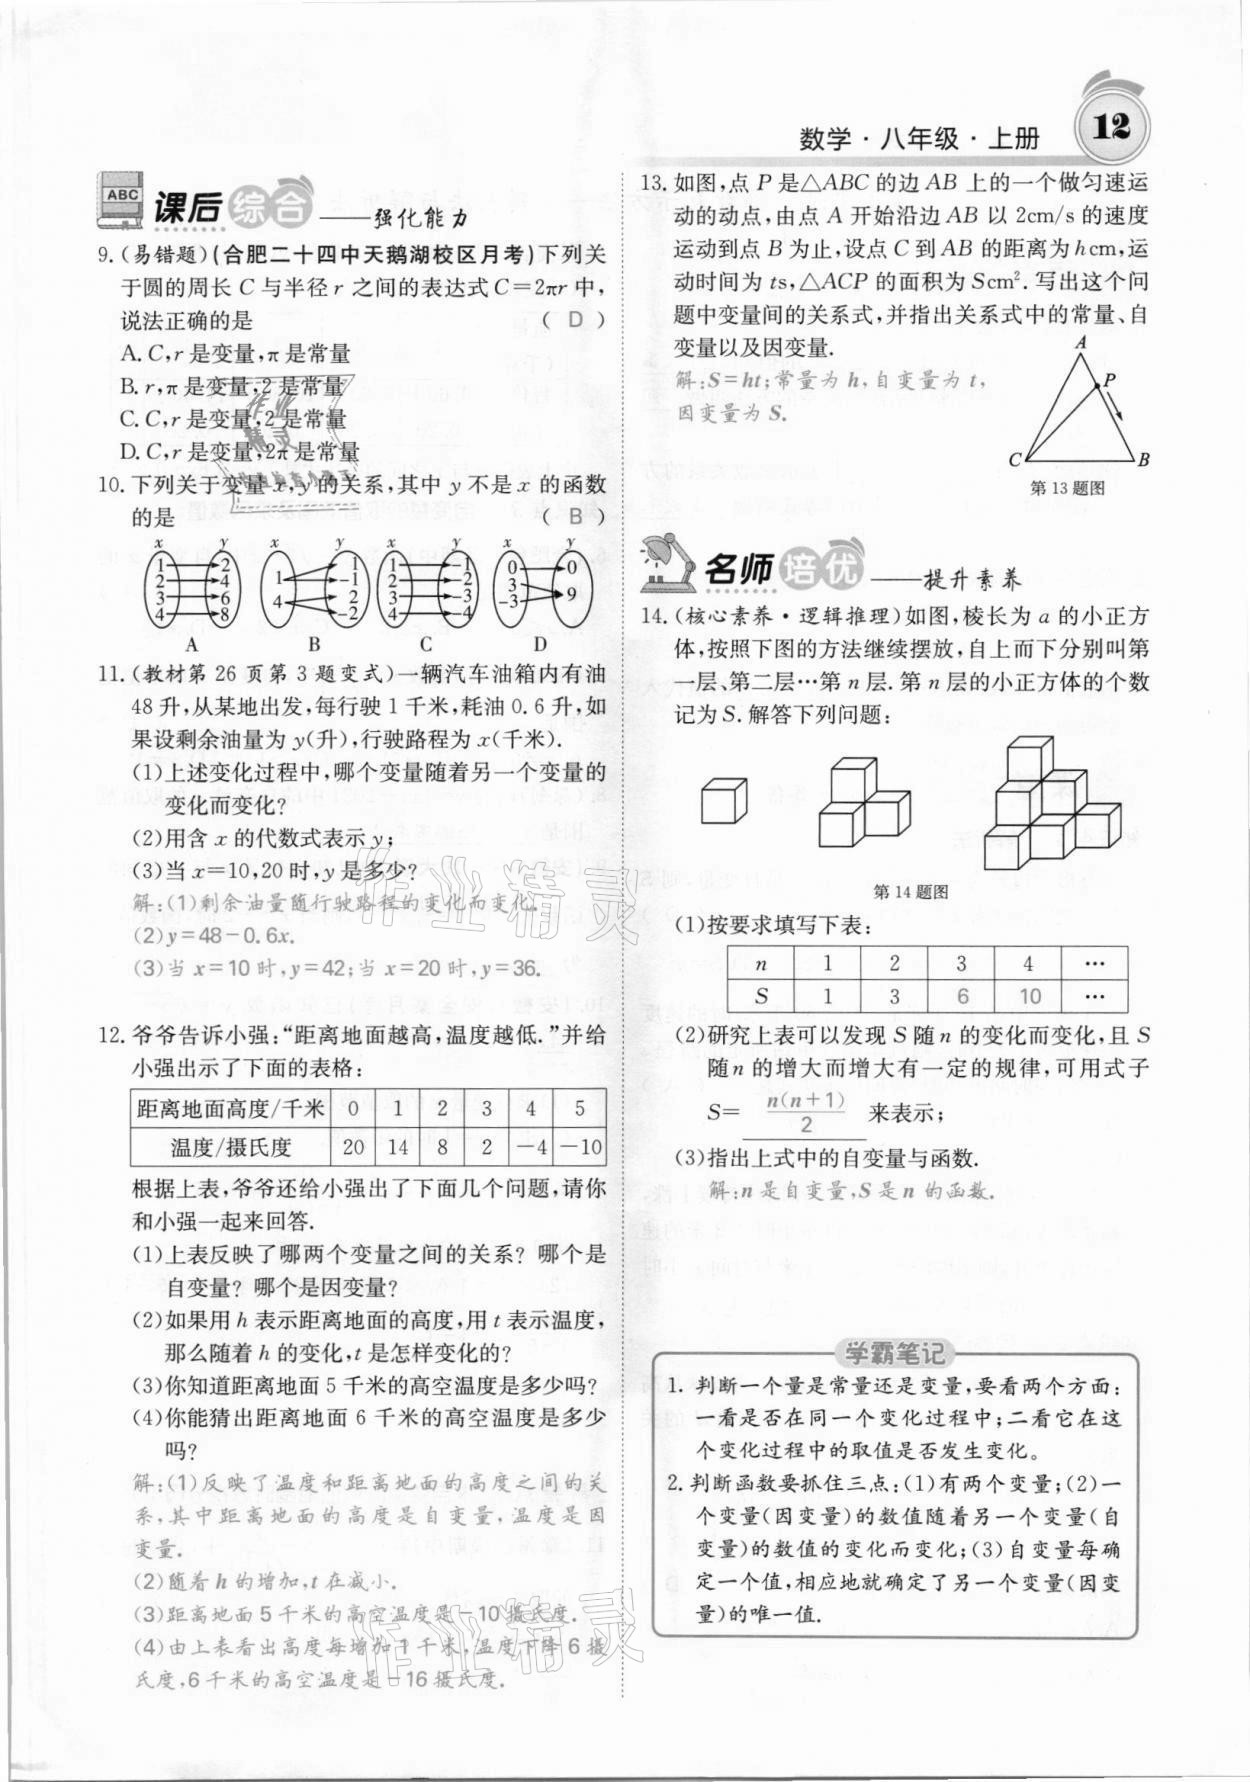 数学·八年级·上册
12
ABC
课后综合——强化能力
9.(易错题)(合肥二十四中天鹅湖校区月考)下列关
于圆的周长C与半径r之间的表达式C=2πr中,
说法正确的是 ( D )
A.C,r是变量,π是常量
B.r,π是变量,2是常量
C.C,r是变量,2是常量
D.C,r是变量,2π是常量
10.下列关于变量x,y的关系,其中y不是x的函数
的是 ( B )
x y x y x y x y
1 2 3 4 2 4 6 8
1 4 1 -1 2 -2
1 2 3 4 -1 -2 -3 -4
0 3 -3 0 9
A B C D
11.(教材第26页第3题变式)一辆汽车油箱内有油
48升,从某地出发,每行驶1千米,耗油0.6升,如
果设剩余油量为y(升),行驶路程为x(千米).
(1)上述变化过程中,哪个变量随着另一个变量的
变化而变化?
(2)用含x的代数式表示y;
(3)当x=10,20时,y是多少?
解:(1)剩余油量随行驶路程的变化而变化.
(2)y=48-0.6x.
(3)当x=10时,y=42;当x=20时,y=36.
12.爷爷告诉小强:“距离地面越高,温度越低.”并给
小强出示了下面的表格:
距离地面高度/千米 0 1 2 3 4 5
温度/摄氏度 20 14 8 2 -4 -10
根据上表,爷爷还给小强出了下面几个问题,请你
和小强一起来回答.
(1)上表反映了哪两个变量之间的关系? 哪个是
自变量? 哪个是因变量?
(2)如果用h表示距离地面的高度,用t表示温度,
那么随着h的变化,t是怎样变化的?
(3)你知道距离地面5千米的高空温度是多少吗?
(4)你能猜出距离地面6千米的高空温度是多少
吗?
解:(1)反映了温度和距离地面的高度之间的关
系,其中距离地面的高度是自变量,温度是因
变量.
(2)随着h的增加,t在减小.
(3)距离地面5千米的高空温度是-10摄氏度.
(4)由上表看出高度每增加1千米,温度下降6摄
氏度,6千米的高空温度是-16摄氏度.
13.如图,点P是△ABC的边AB上的一个做匀速运
动的动点,由点A开始沿边AB以2cm/s的速度
运动到点B为止,设点C到AB的距离为hcm,运
动时间为ts,△ACP的面积为Scm².写出这个问
题中变量间的关系式,并指出关系式中的常量、自
变量以及因变量.
解:S=ht;常量为h,自变量为t,
因变量为S.
A
P
C B
第13题图
名师培优——提升素养
14.(核心素养·逻辑推理)如图,棱长为a的小正方
体,按照下图的方法继续摆放,自上而下分别叫第
一层、第二层…第n层.第n层的小正方体的个数
记为S.解答下列问题:
第14题图
(1)按要求填写下表:
n 1 2 3 4 …
S 1 3 6 10 …
(2)研究上表可以发现S随n的变化而变化,且S
随n的增大而增大有一定的规律,可用式子
S= n(n+1)/2 来表示;
(3)指出上式中的自变量与函数.
解:n是自变量,S是n的函数.
学霸笔记
1.判断一个量是常量还是变量,要看两个方面:
一看是否在同一个变化过程中;二看它在这
个变化过程中的取值是否发生变化。
2.判断函数要抓住三点:(1)有两个变量;(2)一
个变量(因变量)的数值随着另一个变量(自
变量)的数值的变化而变化;(3)自变量每确
定一个值,相应地就确定了另一个变量(因变
量)的唯一值.
作业精灵
作业精灵
作业精灵